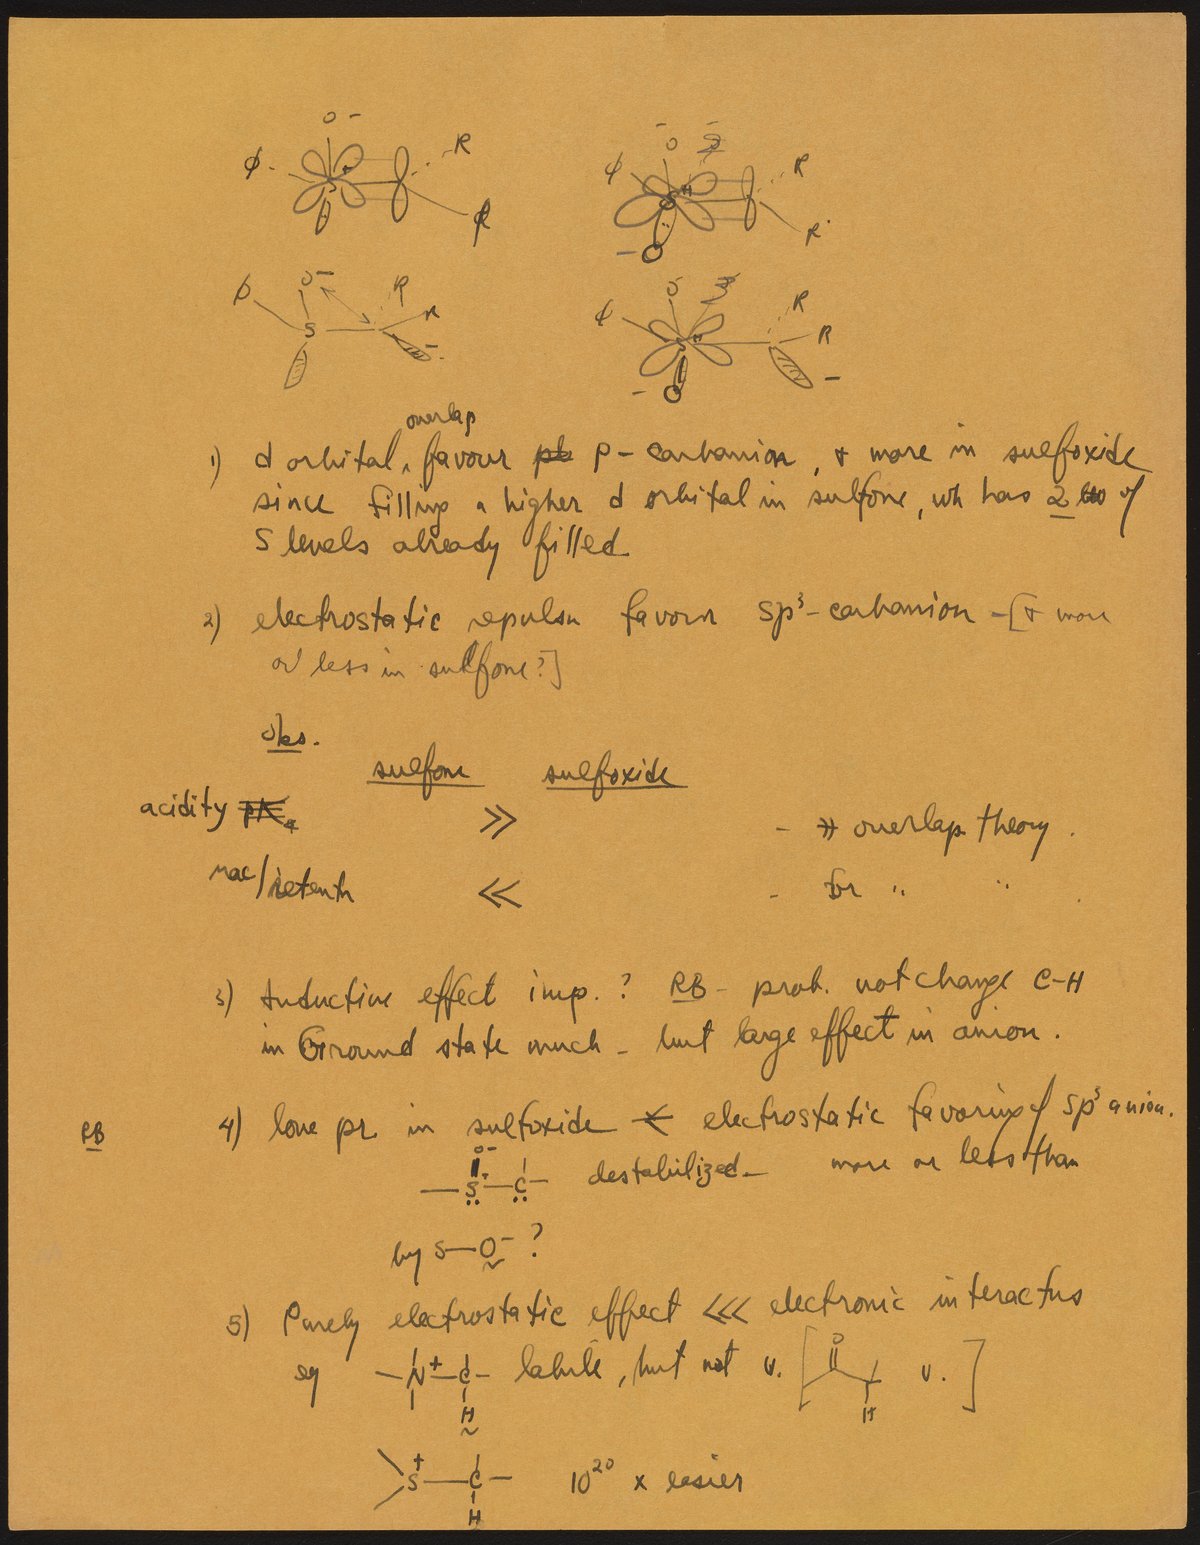 O⁻
ϕ S⁺ R
R
O⁻ ϕ S R
⁻O R
ϕ O⁻ R
S R
ϕ O R
S R
⁻O
overlap
1) d orbital, favour p-carbanion, & more in sulfoxide
since filling a higher d orbital in sulfone, wh has 2 of
S levels already filled
2) electrostatic repulsn favour sp³-carbanion -[& more
or less in sulfone?]
obs.
sulfone sulfoxide
acidity pKa >> - overlap theory.
rac/retentn << - for " "
3) Inductive effect imp.? RB - prob. not change C-H
in Ground state much - but large effect in anion.
RB 4) lone pr in sulfoxide electrostatic favoring of sp³ anion.
O⁻
—S⁺—C— destabilized - more or less than
by S—O⁻ ?
5) Purely electrostatic effect <<< electronic interactns
eg —N⁺—C— labile, but not v. [ O v. ]
H H
S⁺—C— 10²⁰ x easier
H